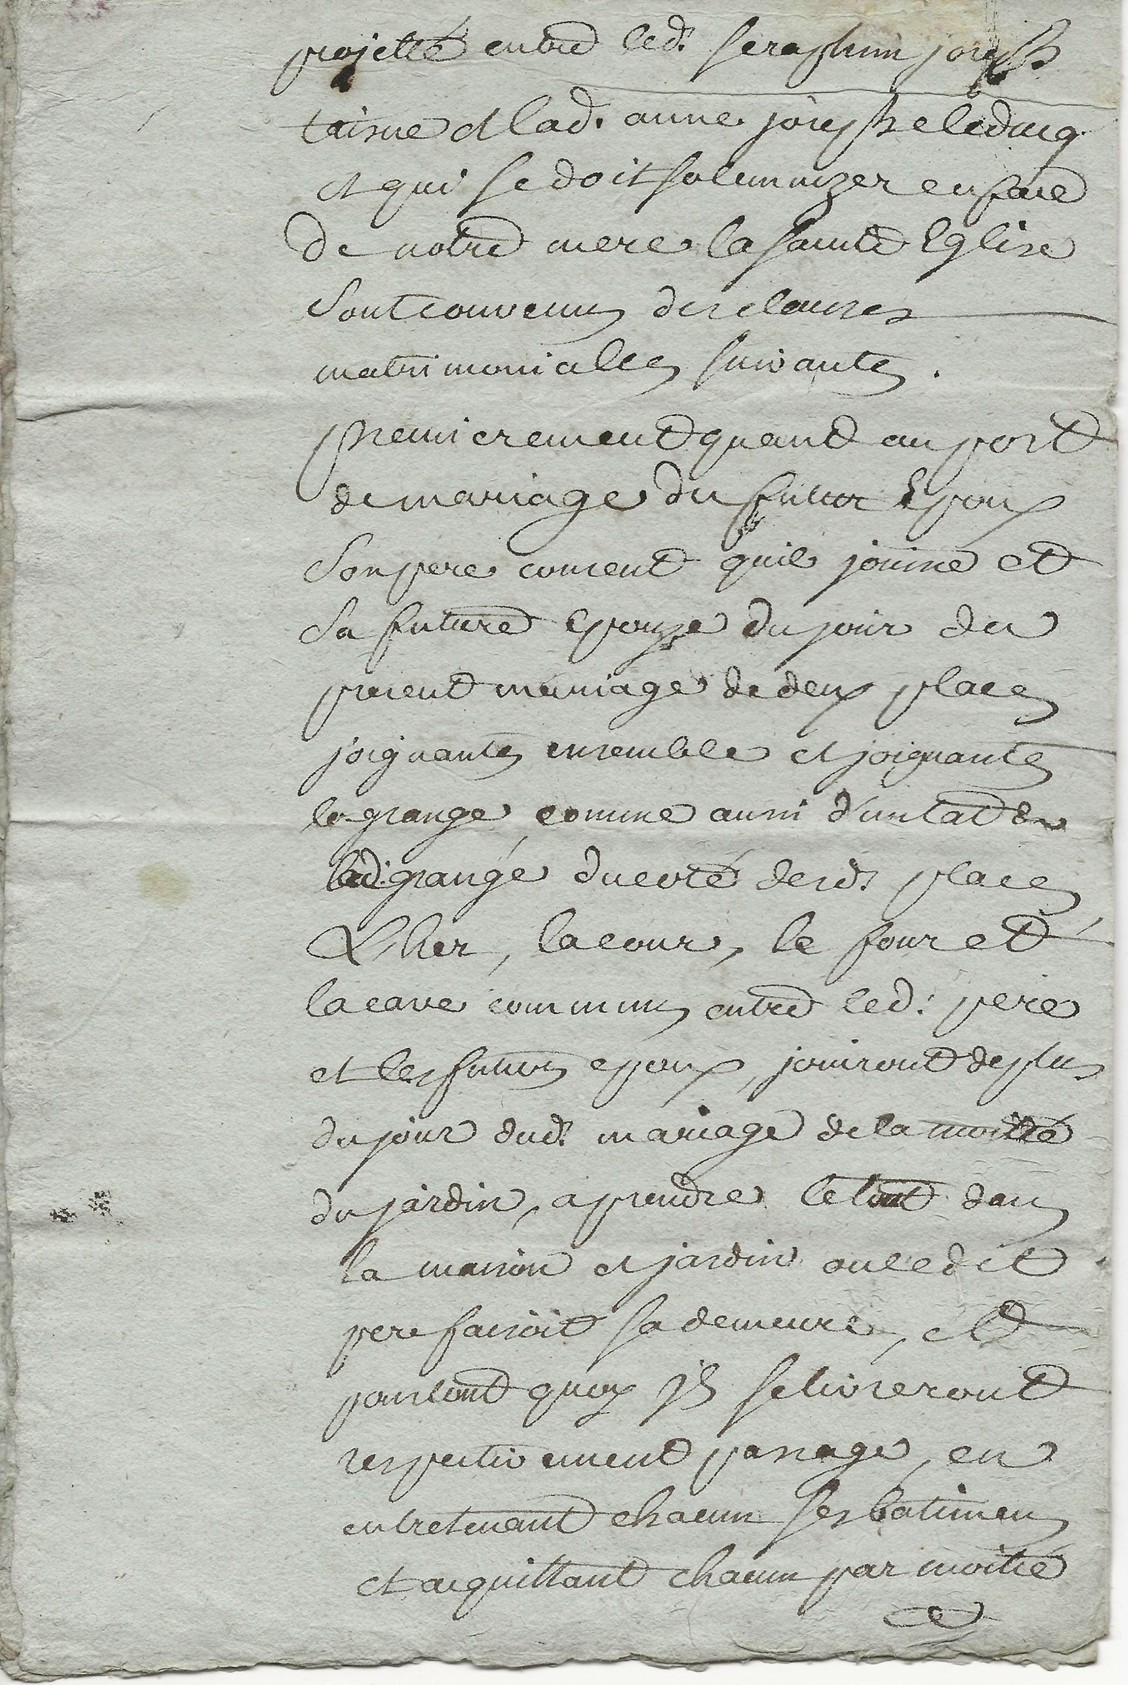 projetté entre led. seraphin joseph
taisne et lad. anne josephe leducq
et qui se doit solemnizer en face
de notre mere la sainte Eglise
sont convenus des clauses
matrimonialles suivantes.
premierement quant au port
de mariage du futur Epoux
son pere consent quil jouisse et
sa future Epouze du jour du
present mariage de deux places
joignantes ensemble et joignantes
la grange, comme aussi d'un tat de
lad. grange du coté desds. places
L'her, la cour, le four et
la cave communs entre led. pere
et les futurs epoux, jouiront de plus
du jour dud. mariage de la moitié
du jardin, a prendre le tout dans
la maison et jardin ou ledit
pere faisoit sa demeure, et
pourtout quoy ils se livreront
respectivement passage, en
entretenant chacun ses batimens
et acquittant chacun par moitié